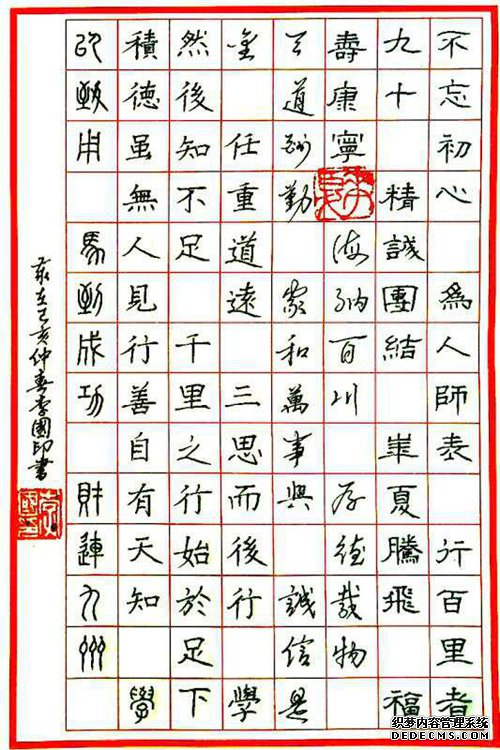 不忘初心 爲人師表 行百里者
九十 精誠團結 華夏騰飛 福
壽康寧 海納百川 厚德載物
天道酬勤 家和萬事興 誠信是
金 任重道遠 三思而後行 學
然後知不足 千里之行始於足下
積德雖無人見行善自有天知 學
以致用 馬到成功 財運九州
歲在己亥仲春李國印書
织梦内容管理系统
DEDECMS.COM